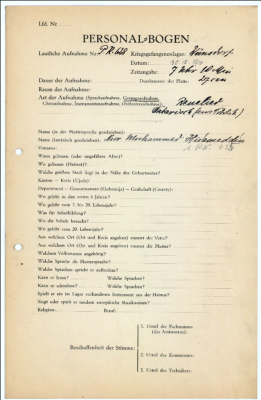 Lfd. Nr.
PERSONAL-BOGEN
Lautliche Aufnahme Nr: PK 1628 Kriegsgefangenenlager: Wünsdorf
Datum:
Zeitangabe: 7 Uhr 10 Min
Dauer der Aufnahme: Durchmesser der Platte: 27 cm
Raum der Aufnahme:
Art der Aufnahme (Sprechaufnahme, Gesangsaufnahme,
Choraufnahme, Instrumentenaufnahme, Orchesteraufnahme):
Name (in der Muttersprache geschrieben):
Name (lateinisch geschrieben): Nur Mochammed
Vorname:
Wann geboren (oder ungefähres Alter)?
Wo geboren (Heimat)?
Welche größere Stadt liegt in der Nähe des Geburtsortes?
Kanton — Kreis (Ujezd):
Departement — Gouvernement (Gubernija) — Grafschaft (County):
Wo gelebt in den ersten 6 Jahren?
Wo gelebt vom 7. bis 20. Lebensjahr?
Was für Schulbildung?
Wo die Schule besucht?
Wo gelebt vom 20. Lebensjahr?
Aus welchem Ort (Ort und Kreis angeben) stammt der Vater?
Aus welchem Ort (Ort und Kreis angeben) stammt die Mutter?
Welchem Volksstamm angehörig?
Welche Sprache als Muttersprache?
Welche Sprachen spricht er außerdem?
Kann er lesen? Welche Sprachen?
Kann er schreiben? Welche Sprachen?
Spielt er ein im Lager vorhandenes Instrument aus der Heimat?
Singt oder spielt er modern europäische Musikweisen?
Religion: Beruf:
Beschaffenheit der Stimme:
1. Urteil des Fachmannes
(des Assistenten):
2. Urteil des Kommissars:
3. Urteil des Technikers: